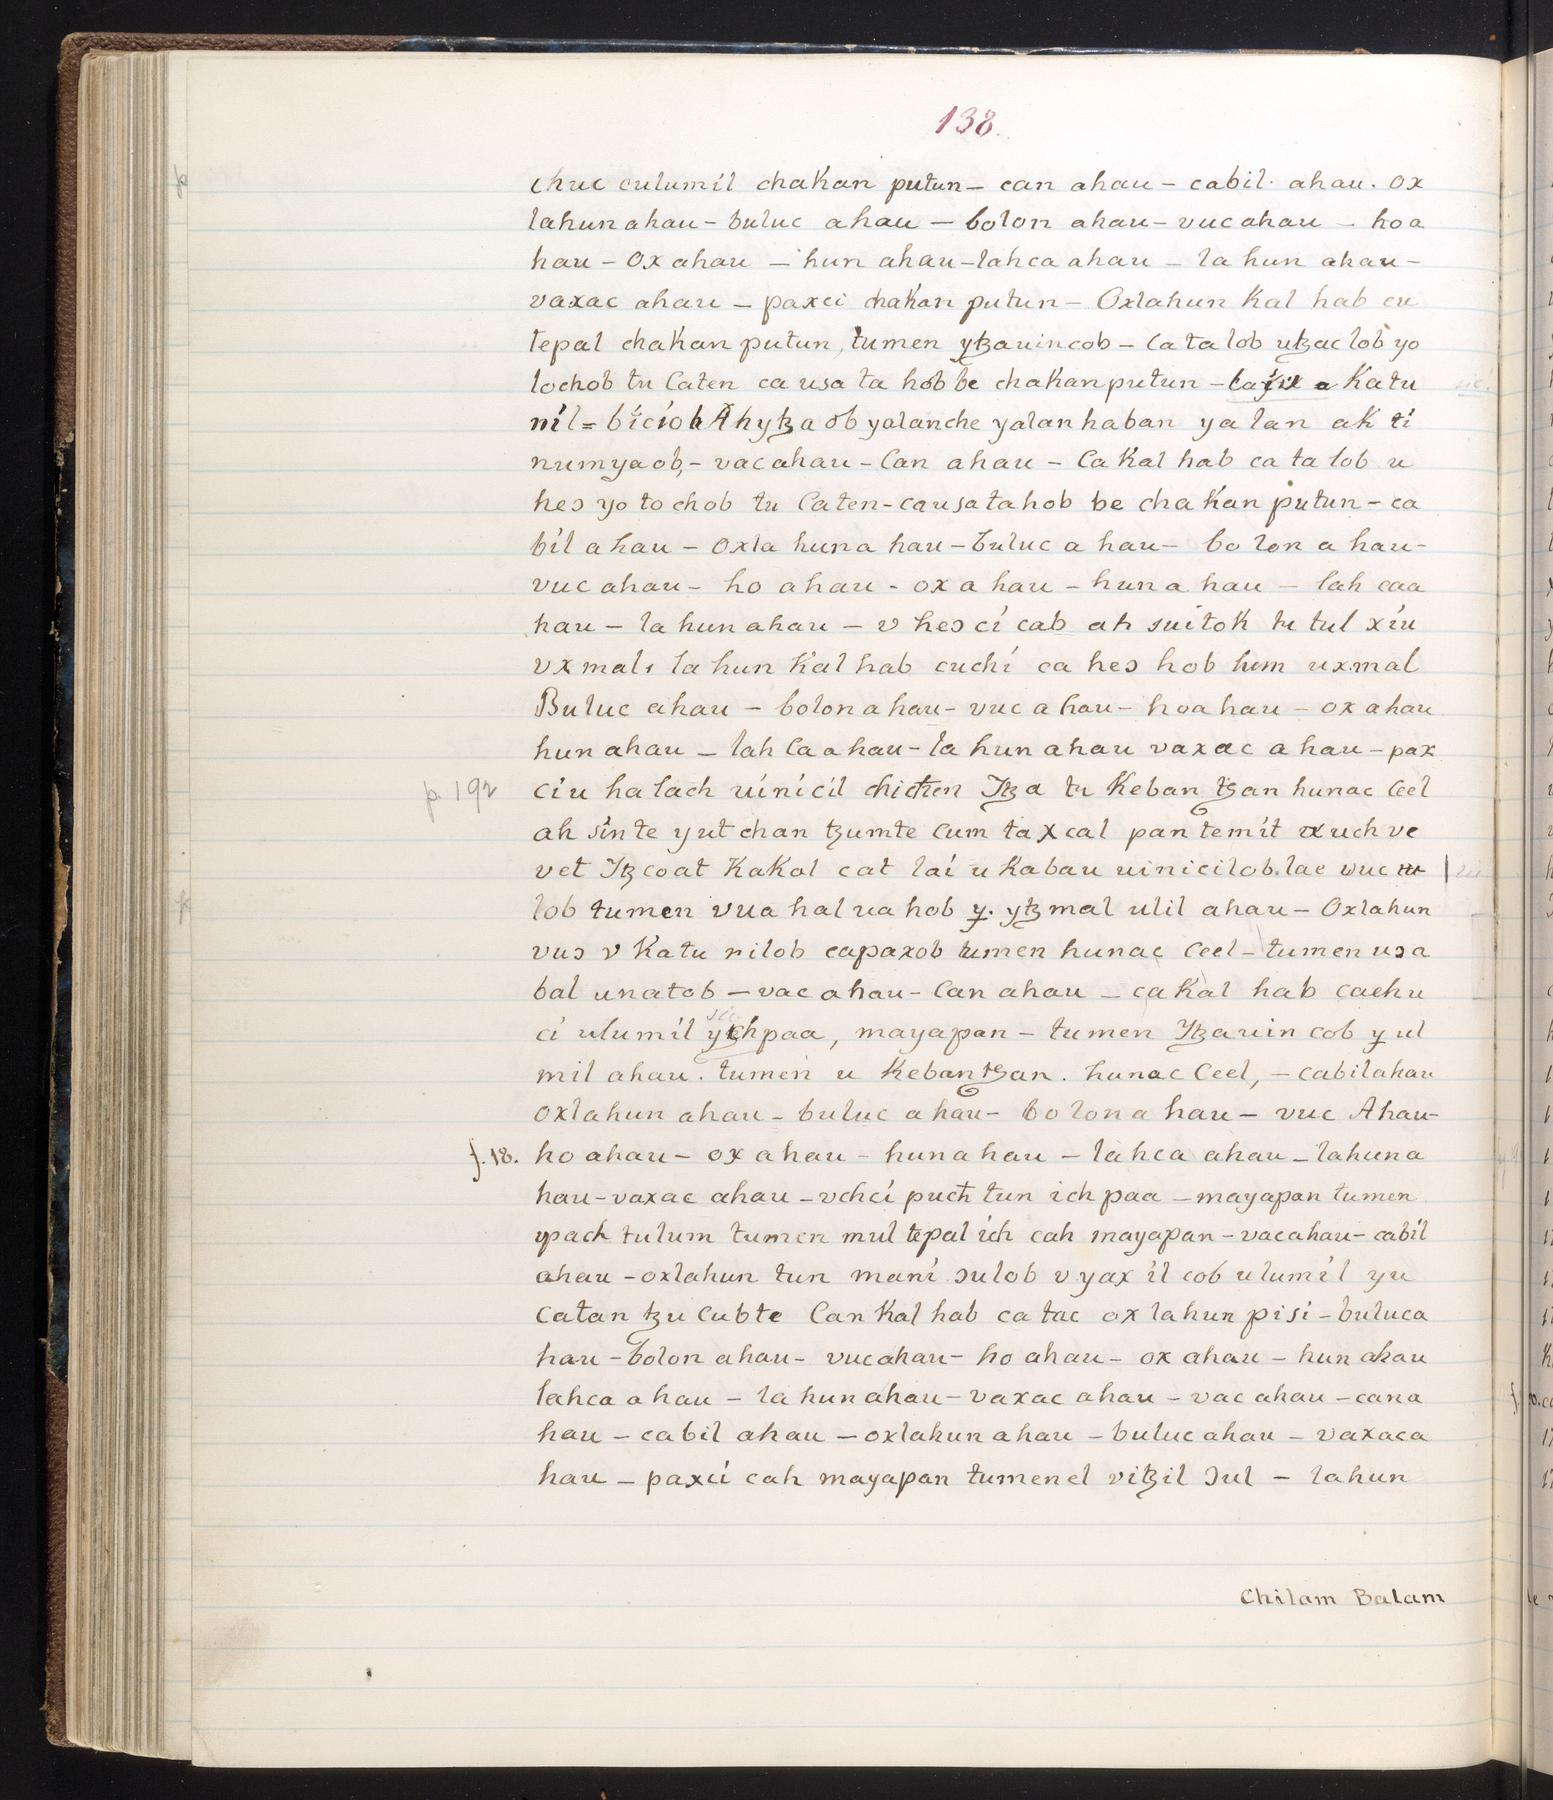 138.
chuc culumíl chakan putun - can ahau - cabil. ahau. ox
lahun ahau - buluc ahau - bolon ahau - vuc ahau - ho a
hau - Ox ahau - hun ahau - lahca ahau - la hun ahau -
vaxac ahau - paxci chakan putun - Oxlahun Kal hab cu
tepal chakan putun, tumen yꜩauincob - Ca ta lob uꜩac lob yo
lochob tu Caten ca usa ta hob be chakanputun - Katu
níl = bícíob Ahyꜩa ob yalanche yalan haban ya lan ak tí
numyaob, - vac ahau - Can ahau - Ca Kal hab ca ta lob u
heɔ yo to chob tu Caten - causatahob be cha Kan putun - ca
bíl ahau - Oxla huna hau - buluc a hau - bo lon a hau -
vuc ahau - ho ahau - ox a hau - hun a hau - lah caa
hau - la hun ahau - v heɔ cí cab ah suítok tu tul xíu
vxmal, la hun Kal hab cuchí ca heɔ hob lum uxmal
Buluc ahau - bolon a hau - vuc a hau - hoa hau - ox ahau
hun ahau - lah Caa hau - la hun ahau vaxac a hau - pax
p. 192 cíu ha lach uínícíl chichen Iꜩa tu Keban ꜩan hunac Ceel
ah sínte yut chan ꜩumte Cum taxcal pan temít xuch ve
vet Iꜩcoat KaKal cat laí u Kabau uinicilob. lae uuc
lob tumen vua hal ua hob y. yꜩmal ulil ahau - Oxlahun
vuɔ v Katu nilob capaxob tumen hunac Ceel - tumen uɔa
bal unatob - vac ahau - Can ahau - ca Kal hab cachu
cí ulumíl ychpaa, mayapan - tumen Yꜩauin cob y ul
mil ahau. tumen u Kebanꜩan. hunac Ceel, - cabilahau
oxlahun ahau - buluc a hau - bo lon a hau - vuc Ahau -
f. 18. ho ahau - ox ahau - hun a hau - lahca ahau - lahuna
hau - vaxac ahau - vchcí puch tun ich paa - mayapan tumen
upach tulum tumen mul tepal ich cah mayapan - vacahau - cabíl
ahau - oxlahun tun maní ɔulob v yax íl cob ulumíl yu
catan ꜩu Cubte Can Kal hab ca tac ox lahun pisí - buluca
hau - bolon ahau - vucahau - ho ahau - ox ahau - hun ahau
lahca ahau - la hun ahau - vaxac ahau - vac ahau - cana
hau - cabil ahau - oxlahun ahau - buluc ahau - vaxaca
hau - paxcí cah mayapan tumenel viꜩil ɔul - lahun
Chilam Balam